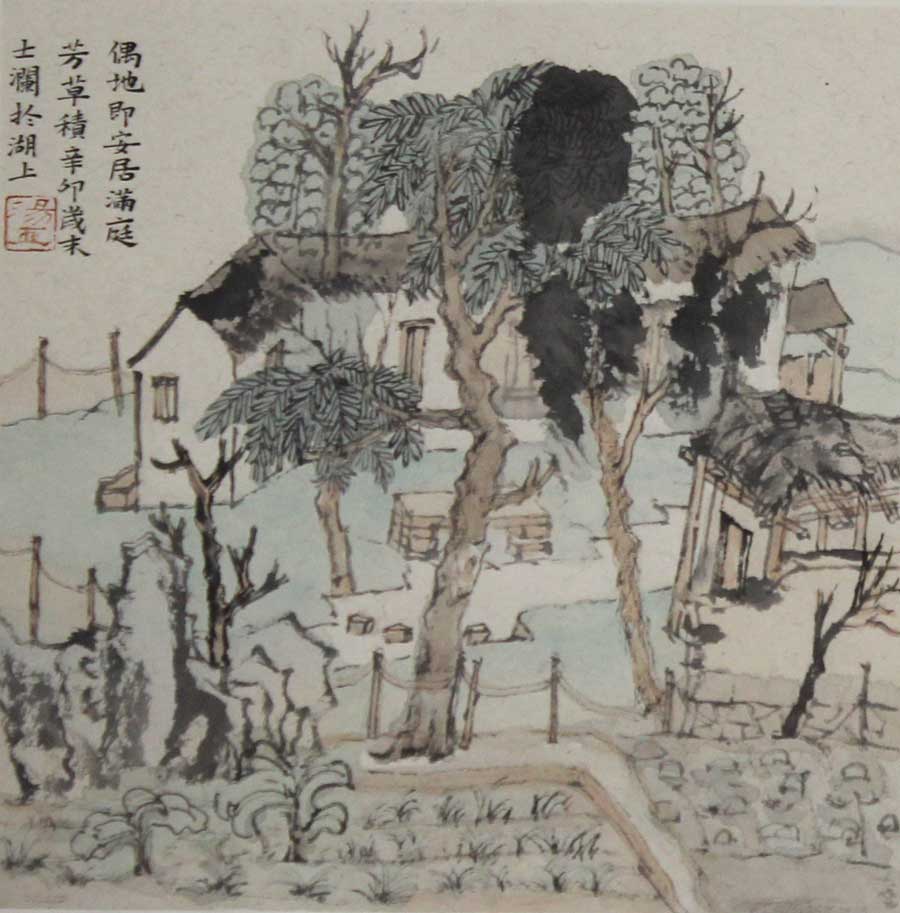 偶地即安居满庭
芳草積辛卯歲末
士瀾於湖上